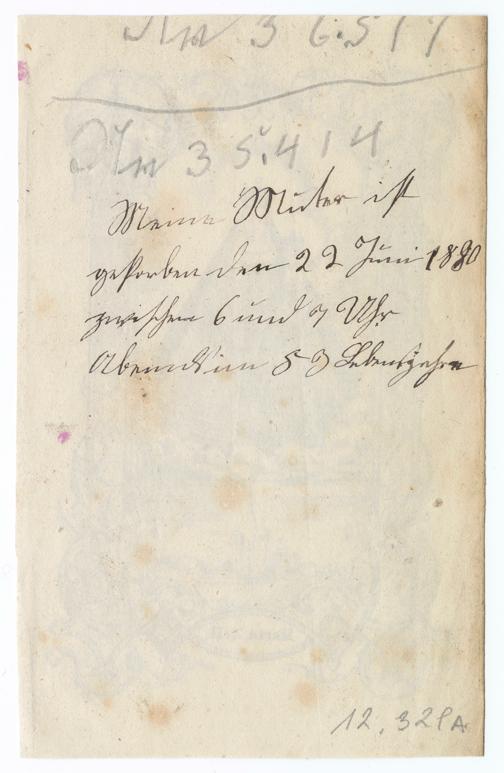 3 6.517
3 5.414
Meine Muter ist
gestorben den 22 Juni 1880
zwischen 6 und 7 Uhr
Abends im 53 Lebensjahre
12.329A